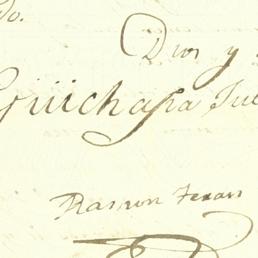 do.
Dios y
Güichapa Jul
Ramon Teran